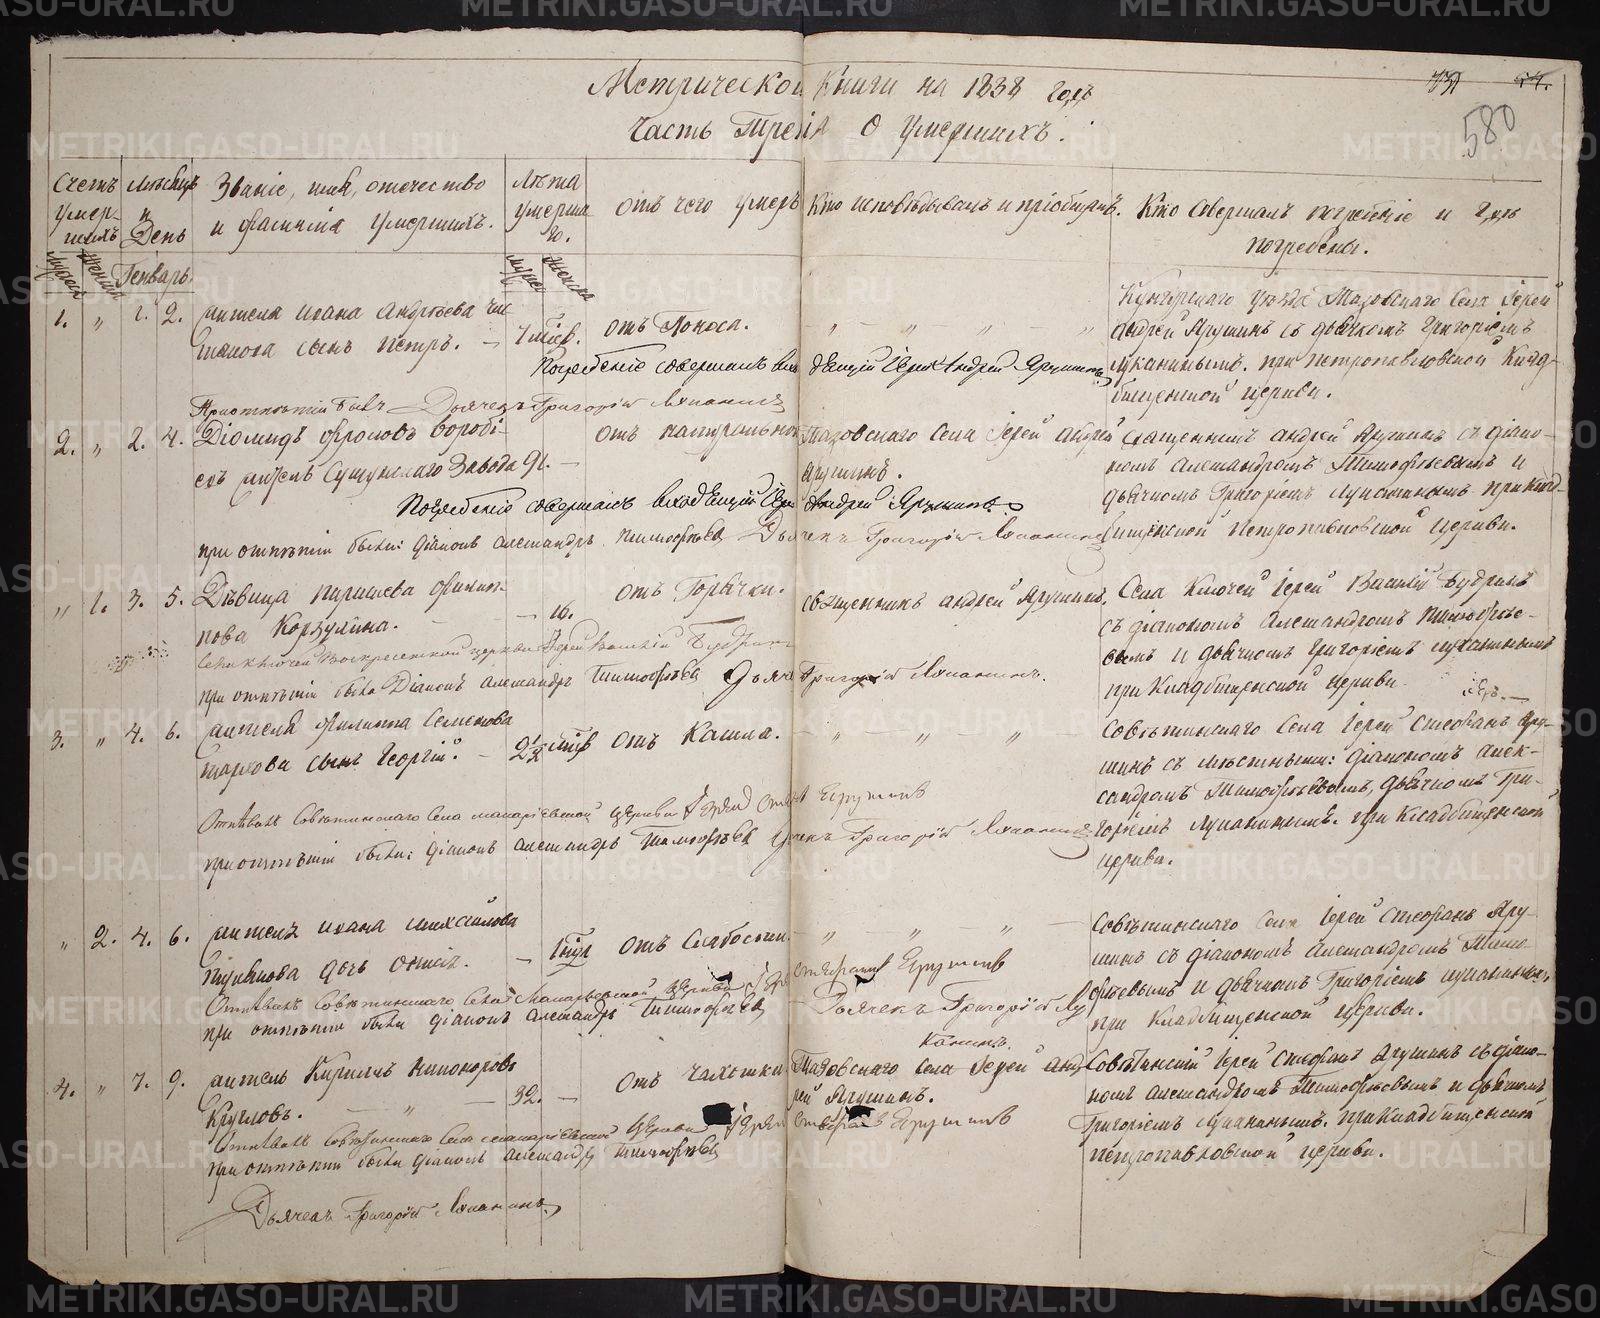 Метрической Книги на 1838 годъ
Часть Третiя о Умершихъ.
580
Счетъ умер-шихъ
Мѣсяцъ и День
Званiе, имя, отечество и фамилiя Умершихъ.
Лѣта умерша го.
отъ чего умеръ
Кто исповѣдывалъ и прiобщалъ.
Кто совершалъ погребенiе и гдѣ погребены.
Генварь.
1. " 1. 2.
жителя ивана андрѣева
сынъ петръ. —
7 мѣс.
отъ Поноса.
Кунгурскаго уѣзда Тазовскаго Села Iерей
андрей Ярушинъ съ дьячкомъ григорiемъ
луканинымъ. при петропавловской Клад-
бищенской церкви.
Погребенiе совершалъ Iерей Андрей Ярушинъ
Дьячекъ Григорiй Луканинъ
2. " 2. 4.
Дiомидъ фроловъ воробi-
евъ житель Сушунскаго Завода 91. —
отъ натуральной
Тазовскаго Села Iерей андрей
Ярушинъ.
Священникъ андрей Ярушинъ съ дiако-
номъ александромъ Тимофѣевымъ и
дьячкомъ Григорiемъ Луканинымъ. при клад-
бищенской Петропавловской церкви.
Погребенiе совершалъ Iерей Андрей Ярушинъ.
при отпѣтiи были: дiаконъ александръ тимофѣевъ Дьячекъ Григорiй Луканинъ
" 1. 3. 5.
Дѣвица
пова Корзулина. — 16.
отъ Горячки.
священникъ андрей Ярушинъ.
Села Ключей Iерей Василiй Будринъ
съ дiакономъ александромъ тимофѣе-
вымъ и дьячкомъ григорiемъ луканинымъ
при Кладбищенской церкви.
Села ключей Воскресенской церкви Iерей Василiй Будринъ
при отпѣтiи былъ Дiаконъ александръ Тимофѣевъ Дьячекъ Григорiй Луканинъ.
3. " 4. 6.
жителя филиппа Семенова
сынъ Георгiй. —
отъ Кашля.
Совѣтинскаго Села Iерей Стефанъ Яру-
шинъ съ мѣстными: дiакономъ алек-
сандромъ Тимофѣевымъ, дьячкомъ Гри-
горiемъ Луканинымъ. при Кладбищенской
церкви.
Отпѣвалъ Совѣтинскаго Села макарiевской церкви Iерей Стефанъ Ярушинъ
при отпѣтiи были: дiаконъ александръ Тимофѣевъ Дьячекъ Григорiй Луканинъ
" 2. 4. 6.
жителя ивана михайлова
дочь
отъ Слабости.
Совѣтинскаго Села Iерей Стефанъ Яру-
шинъ съ дiакономъ александромъ Тимо-
фѣевымъ и дьячкомъ Григорiемъ луканинымъ,
при Кладбищенской церкви.
Отпѣвалъ Совѣтинскаго Села Макарьевской церкви Iерей Стефанъ Ярушинъ
при отпѣтiи были дiаконъ александръ Тимофѣевъ Дьячекъ Григорiй Лу
канинъ.
4. " 7. 9.
житель Кириллъ Никоноровъ
Кругловъ. — " — 32. —
отъ чахотки
Тазовскаго села Iерей анд-
рей Ярушинъ.
Совѣтинскiй Iерей Стефанъ Ярушинъ съ дiако-
номъ александромъ Тимофѣевымъ и дьячкомъ
Григорiемъ Луканинымъ. при Кладбищенской
петропавловской церкви.
Отпѣвалъ Совѣтинскаго Села макарiевской Церкви Iерей Стефанъ Ярушинъ
при отпѣтiи были дiаконъ александръ Тимофѣевъ
Дьячекъ Григорiй Луканинъ.
METRIKI.GASO-URAL.RU